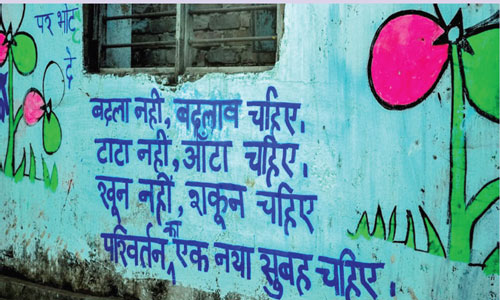 पर भोट
दे
बदला नही, बदलाव चहिए.
टाटा नही, आँटा चहिए.
खून नहीं, शकून चहिए
परिवर्तन, का एक नया सुबह चहिए.